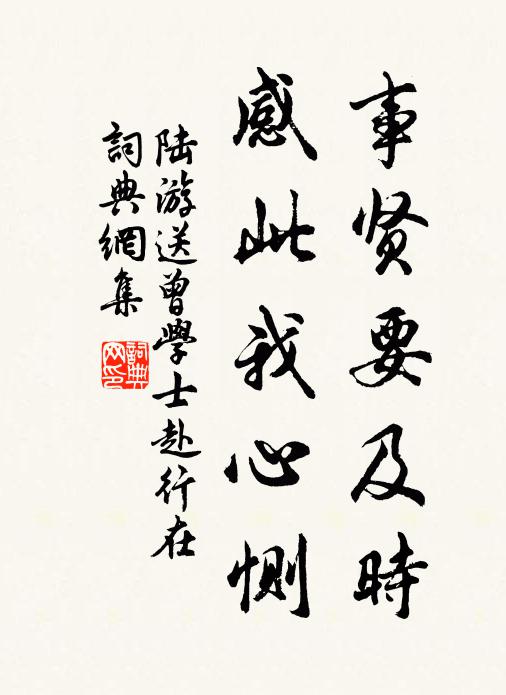 事贤要及時
感此我心惻
陆游送曾學士赴行在
詞典網集
詞典网印